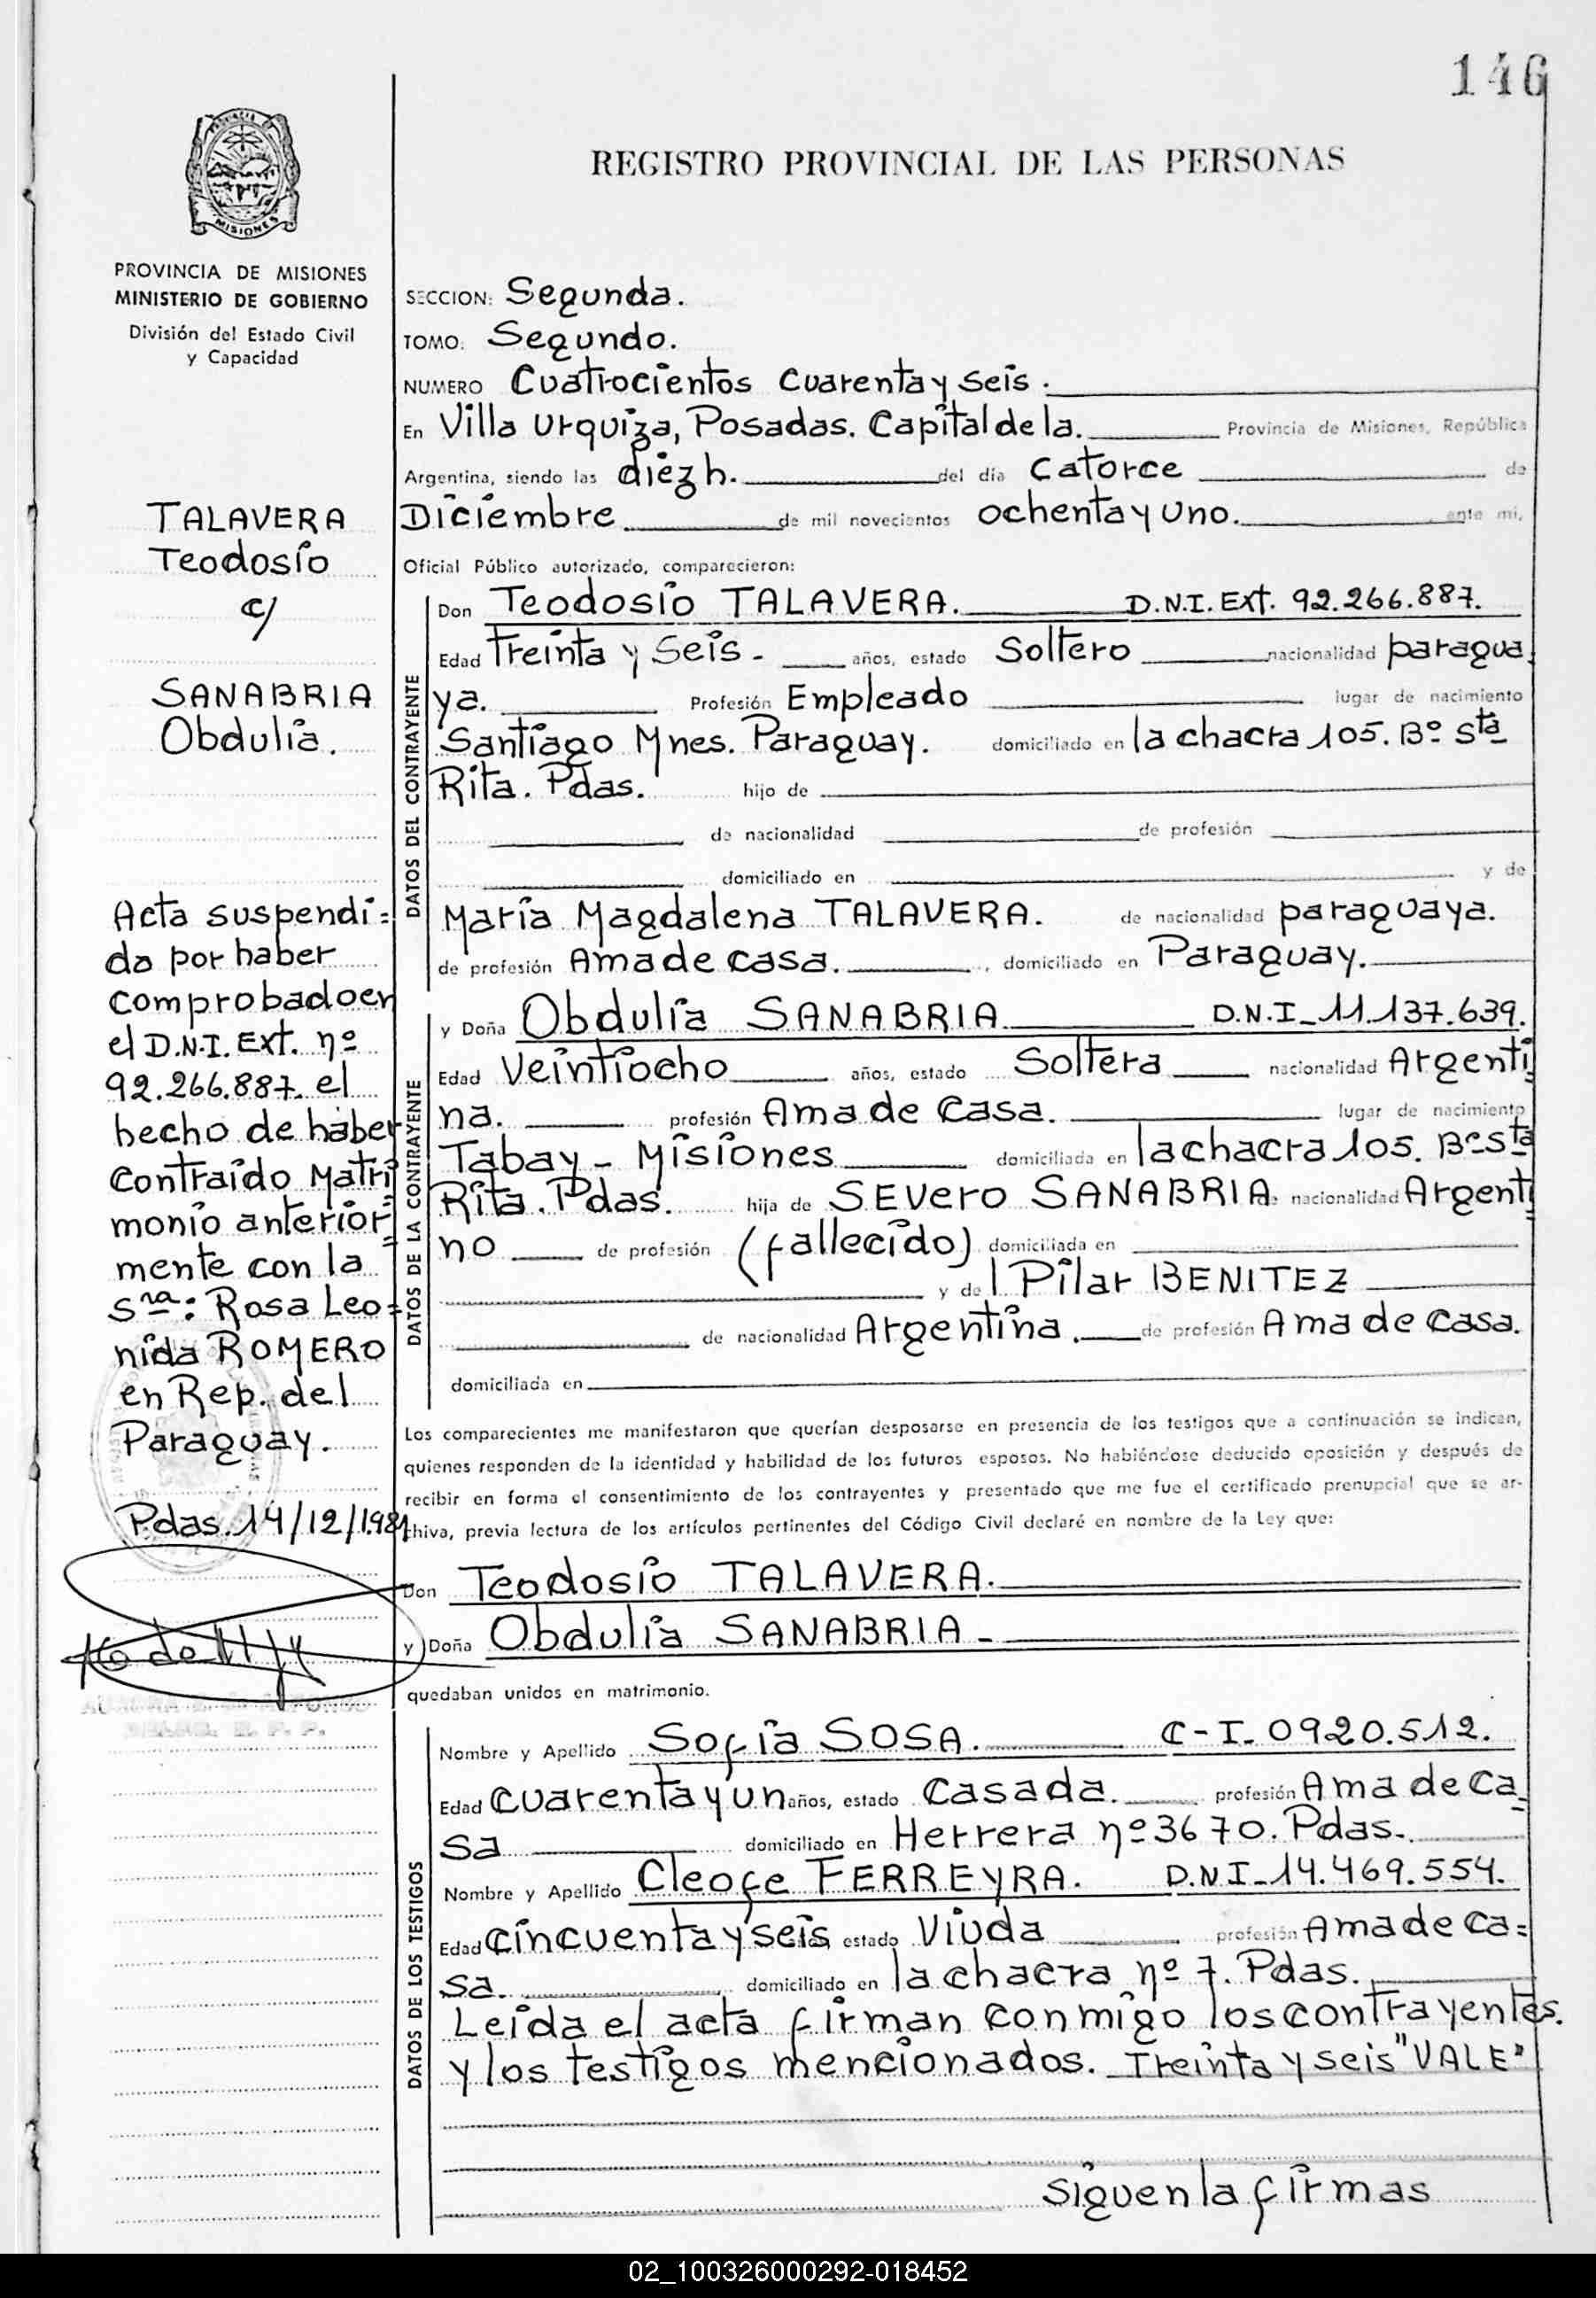 146
MISIONES
PROVINCIA DE MISIONES
MINISTERIO DE GOBIERNO
División del Estado Civil
y Capacidad
TALAVERA
Teodosio
c/
SANABRIA
Obdulia.
Acta suspendi=
da por haber
comprobado en
el D.N.I. Ext. nº
92.266.887. el
hecho de haber
contraído Matri
monio anterior=
mente con la
Sra: Rosa Leo=
nida ROMERO
en Rep. del
Paraguay.
Pdas. 14/12/1981
REGISTRO PROVINCIAL DE LAS PERSONAS
SECCION: Segunda.
TOMO: Segundo.
NUMERO Cuatrocientos Cuarenta y Seis.
En Villa Urquiza, Posadas. Capital de la. Provincia de Misiones, República
Argentina, siendo las diez h. del día catorce de
Diciembre de mil novecientos ochenta y uno. ante mi,
Oficial Público autorizado, comparecieron:
DATOS DEL CONTRAYENTE
Don Teodosio TALAVERA. D.N.I. Ext. 92.266.887.
Edad Treinta y Seis - años, estado Soltero nacionalidad paragua
ya. Profesión Empleado lugar de nacimiento
Santiago Mnes. Paraguay. domiciliado en la chacra 105. Bº Sta
Rita. Pdas. hijo de
de nacionalidad de profesión
domiciliado en y de
María Magdalena TALAVERA. de nacionalidad paraguaya.
de profesión Ama de casa. domiciliado en Paraguay.
DATOS DE LA CONTRAYENTE
y Doña Obdulia SANABRIA D.N.I_11.137.639.
Edad Veintiocho años, estado Soltera nacionalidad Argenti
na. profesión Ama de Casa. lugar de nacimiento
Tabay - Misiones domiciliada en la chacra 105. Bº Sta
Rita. Pdas. hija de SEVero SANABRIA nacionalidad Argenti
no de profesión (fallecido) domiciliada en
y de Pilar BENITEZ
de nacionalidad Argentina. de profesión Ama de Casa.
domiciliada en
Los comparecientes me manifestaron que querían desposarse en presencia de los testigos que a continuación se indican,
quienes responden de la identidad y habilidad de los futuros esposos. No habiéndose deducido oposición y después de
recibir en forma el consentimiento de los contrayentes y presentado que me fue el certificado prenupcial que se ar-
chiva, previa lectura de los artículos pertinentes del Código Civil declaré en nombre de la Ley que:
Don Teodosio TALAVERA.
y Doña Obdulia SANABRIA -
quedaban unidos en matrimonio.
DATOS DE LOS TESTIGOS
Nombre y Apellido Sofía SOSA. C-I. 0920.512.
Edad Cuarenta y un años, estado Casada. profesión Ama de Ca
Sa domiciliado en Herrera nº 3670. Pdas.
Nombre y Apellido Cleofe FERREYRA. D.N.I_14.469.554.
Edad Cincuenta y seis estado Viuda profesión Ama de Ca=
Sa. domiciliado en la chacra nº 7. Pdas.
Leida el acta firman conmigo los contrayentes.
y los testigos mencionados. Treinta y seis "VALE"
Siguen la firmas
02_100326000292-018452